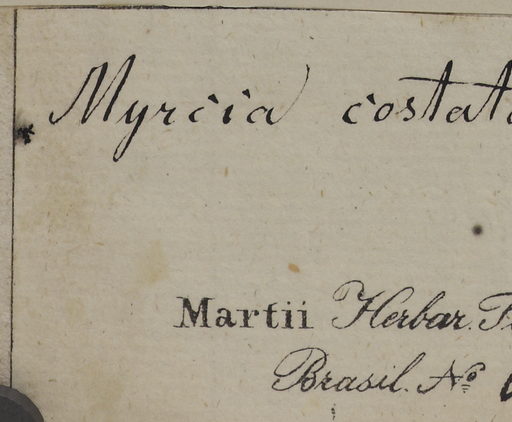 Myrcia costata
Martii Herbar.
Brasil. No